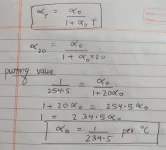 α_T = α₀ / (1 + α₀T)
α₂₀ = α₀ / (1 + α₀×20)
putting value
1 / 254.5 = α₀ / (1 + 20α₀)
1 + 20α₀ = 254.5α₀
1 = 234.5α₀
α₀ = 1 / 234.5 per °C